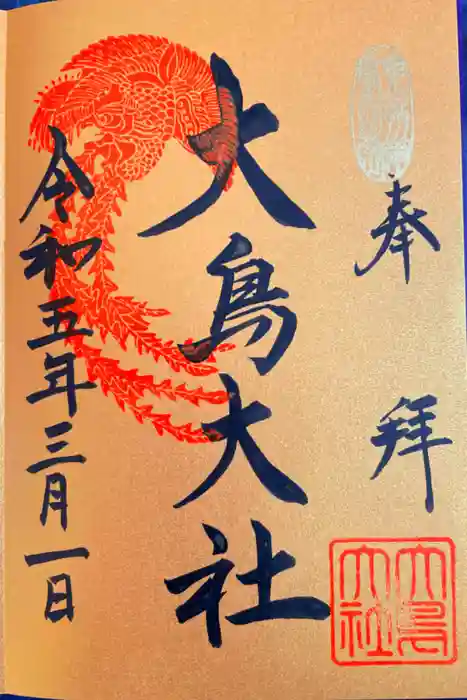 奉拝
大鳥
大社
大鳥大社
令和五年三月一日